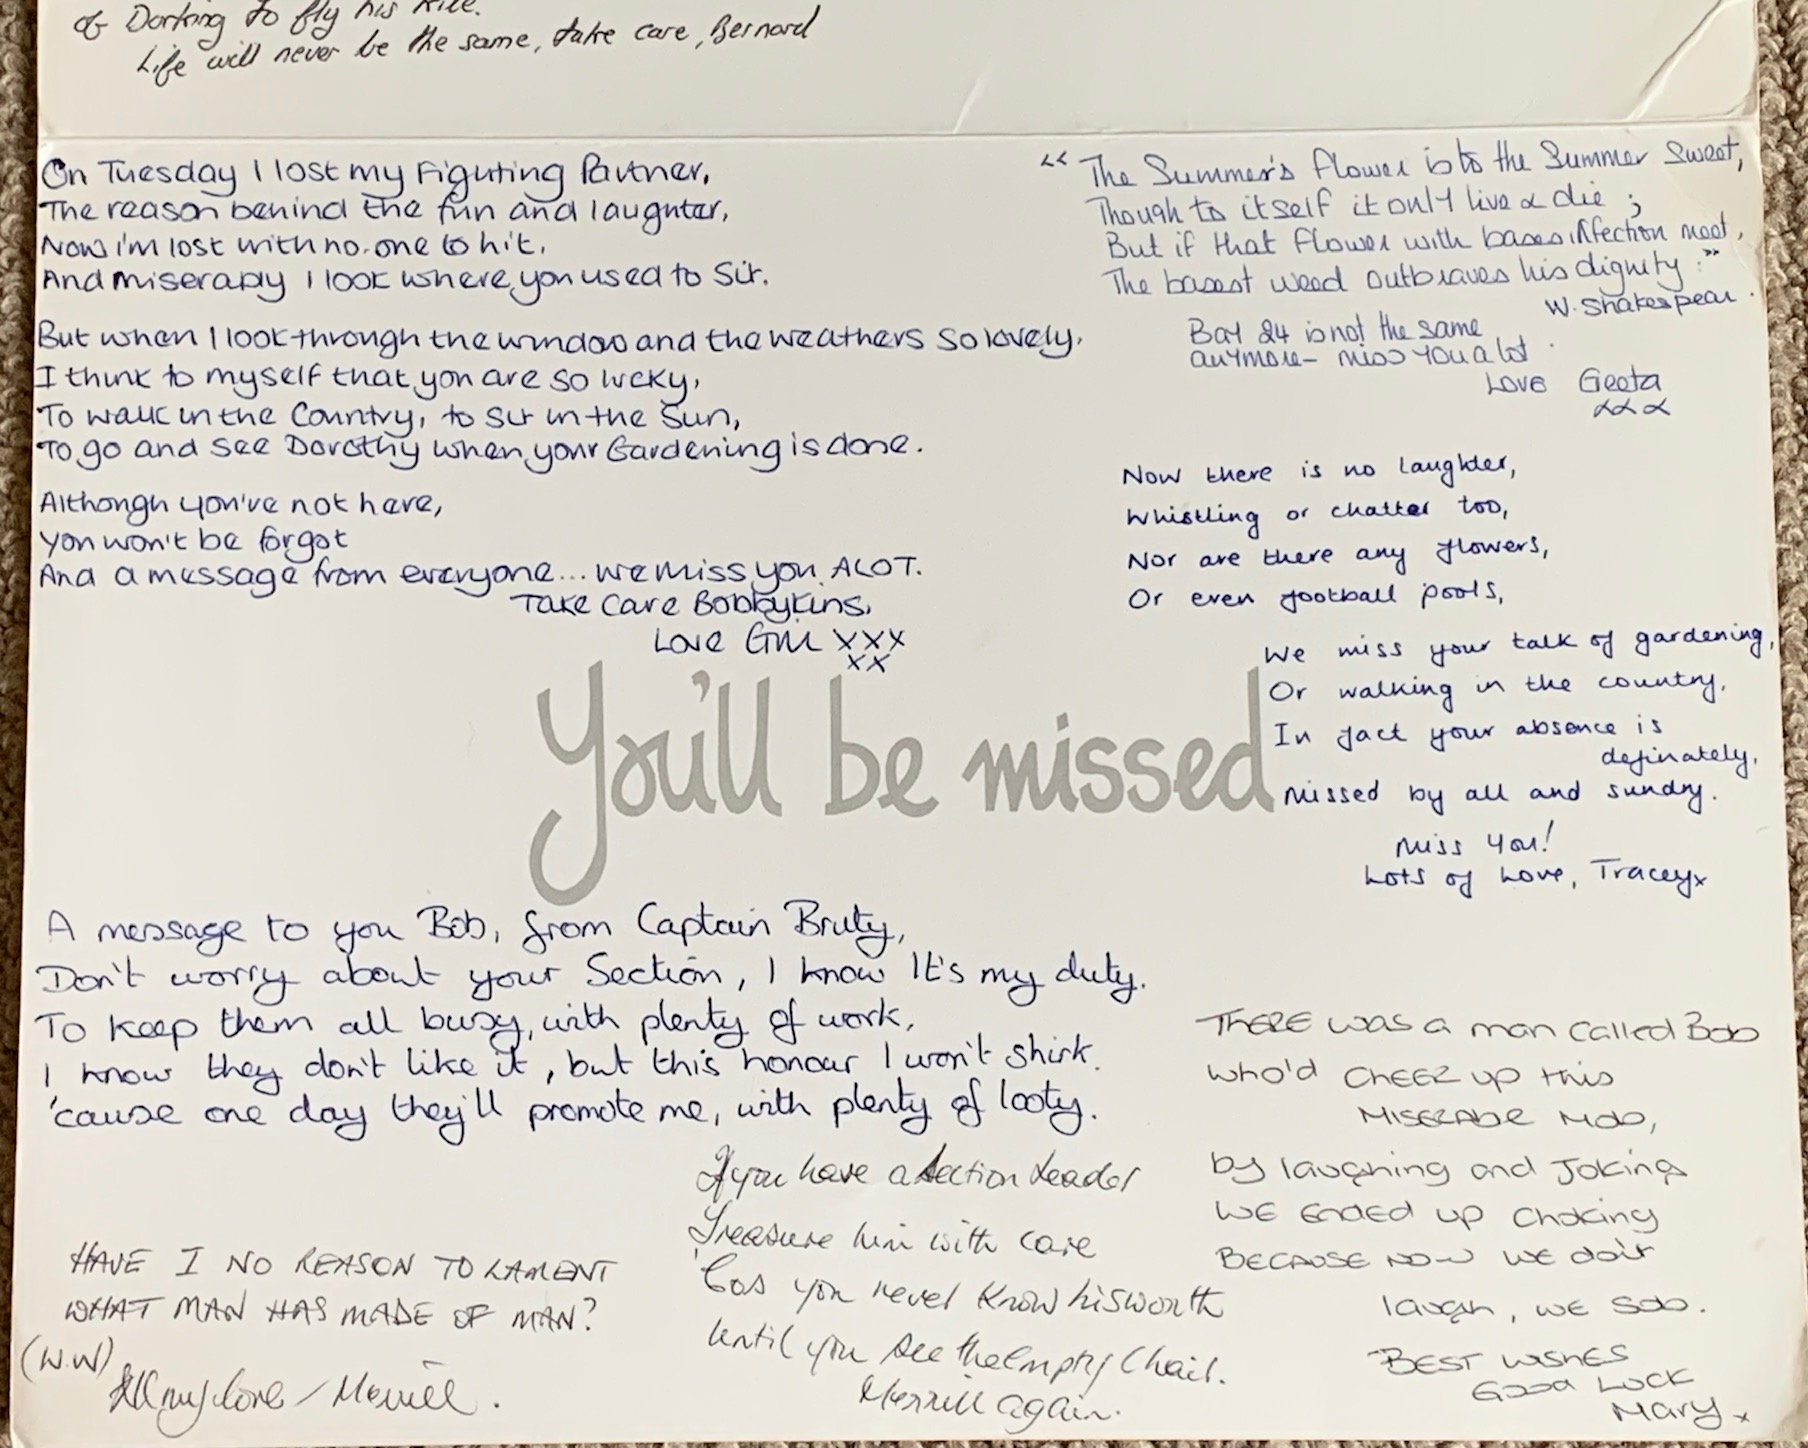 of Dorking to fly his kite.
Life will never be the same, take care, Bernard
On Tuesday I lost my Fighting Partner,
The reason behind the fun and laughter,
Now i'm lost with no.one to hit,
And miserably I look where you used to sit.
But when I look through the window and the weathers so lovely,
I think to myself that you are so lucky,
To walk in the Country, to sit in the Sun,
To go and see Dorothy when your Gardening is done.
Although you've not here,
you won't be forgot
And a message from everyone... we miss you ALOT.
Take Care Bobbykins,
Love Gill xxx
xx
"The Summer's flower is to the Summer Sweet,
Though to itself it only live & die ;
But if that flower with base infection meet,
The basest weed outbraves his dignity."
W. Shakespear.
Bay 24 is not the same
anymore - miss you a lot.
Love Geeta
xxx
Now there is no laughter,
Whistling or chatter too,
Nor are there any flowers,
Or even football pools,
We miss your talk of gardening,
Or walking in the country,
In fact your absence is
definately,
Missed by all and sundry.
Miss You!
Lots of Love, Tracey x
You'll be missed
A message to you Bob, from Captain Bruty,
Don't worry about your Section, I know It's my duty.
To keep them all busy, with plenty of work,
I know they don't like it, but this honour I won't shirk.
'cause one day they'll promote me, with plenty of looty.
THERE was a man called Bob
who'd CHEER up this
MISERABLE MOB,
by laughing and Joking
WE ENDED up choking
BECAUSE NOW WE don't
laugh, WE SOB.
BEST WISHES
Good LUCK
Mary x
If you have a Section Leader
Treasure him with care
'Cos you never know his worth
Until you see the Empty Chair.
Merrill again.
HAVE I NO REASON TO LAMENT
WHAT MAN HAS MADE OF MAN?
(W.W)
All my love / Merrill.